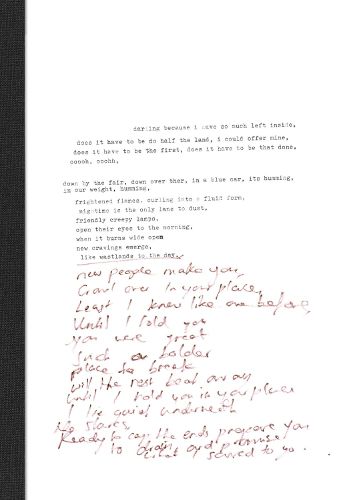 darling because i have so much left inside,
does it have to be do half the land, i could offer mine,
does it have to be the first, does it have to be that done,
ooooh, ooohh,
down by the fair, down over ther, in a blue car, its humming,
in our weight, humming,
frightened flames, curling into a fluid form,
nightime is the only lane to dust,
friendly creepy lanes,
open their eyes to the morning,
when it burns wide open
new cravings emerge,
like wastlands to the day,
new people make you,
Crawl over in your place,
Least I knew like one before,
Until I told you
you were great
Such a bolder
place to break
will the rest beat away
Until I told you in your place
I lie quiet underneath
No stares
Ready to cap, the ends prepare you
to and promise
scared to go.